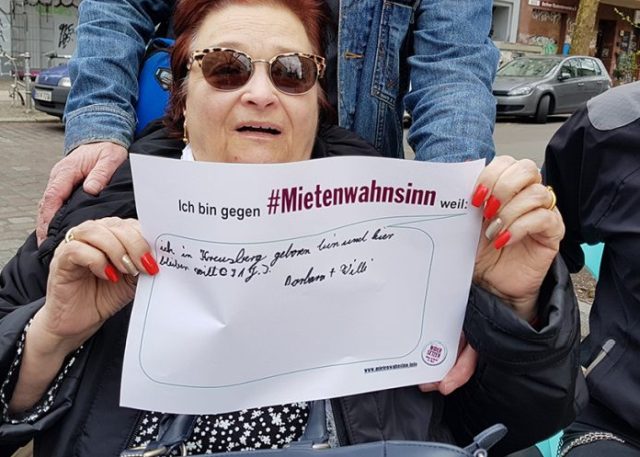 Ich bin gegen #Mietenwahnsinn weil:
ich in Kreuzberg geboren bin und hier
bleiben will J.
Barbara + Willi
WIDER
SETZEN
www.mietenwahnsinn.info